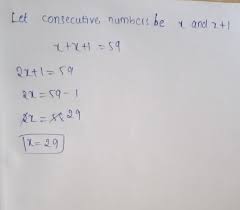 Let consecutive numbers be x and x+1
x+x+1 = 59
2x+1 = 59
2x = 59-1
2x = 58 29
x = 29